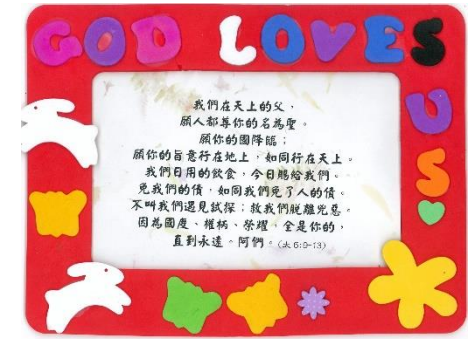 GOD LOVES
US
我們在天上的父，
願人都尊你的名為聖。
願你的國降臨；
願你的旨意行在地上，如同行在天上。
我們日用的飲食，今日賜給我們。
免我們的債，如同我們免了人的債。
不叫我們遇見試探；救我們脫離兇惡。
因為國度、權柄、榮耀，全是你的，
直到永遠。阿們。（太 6:9-13）